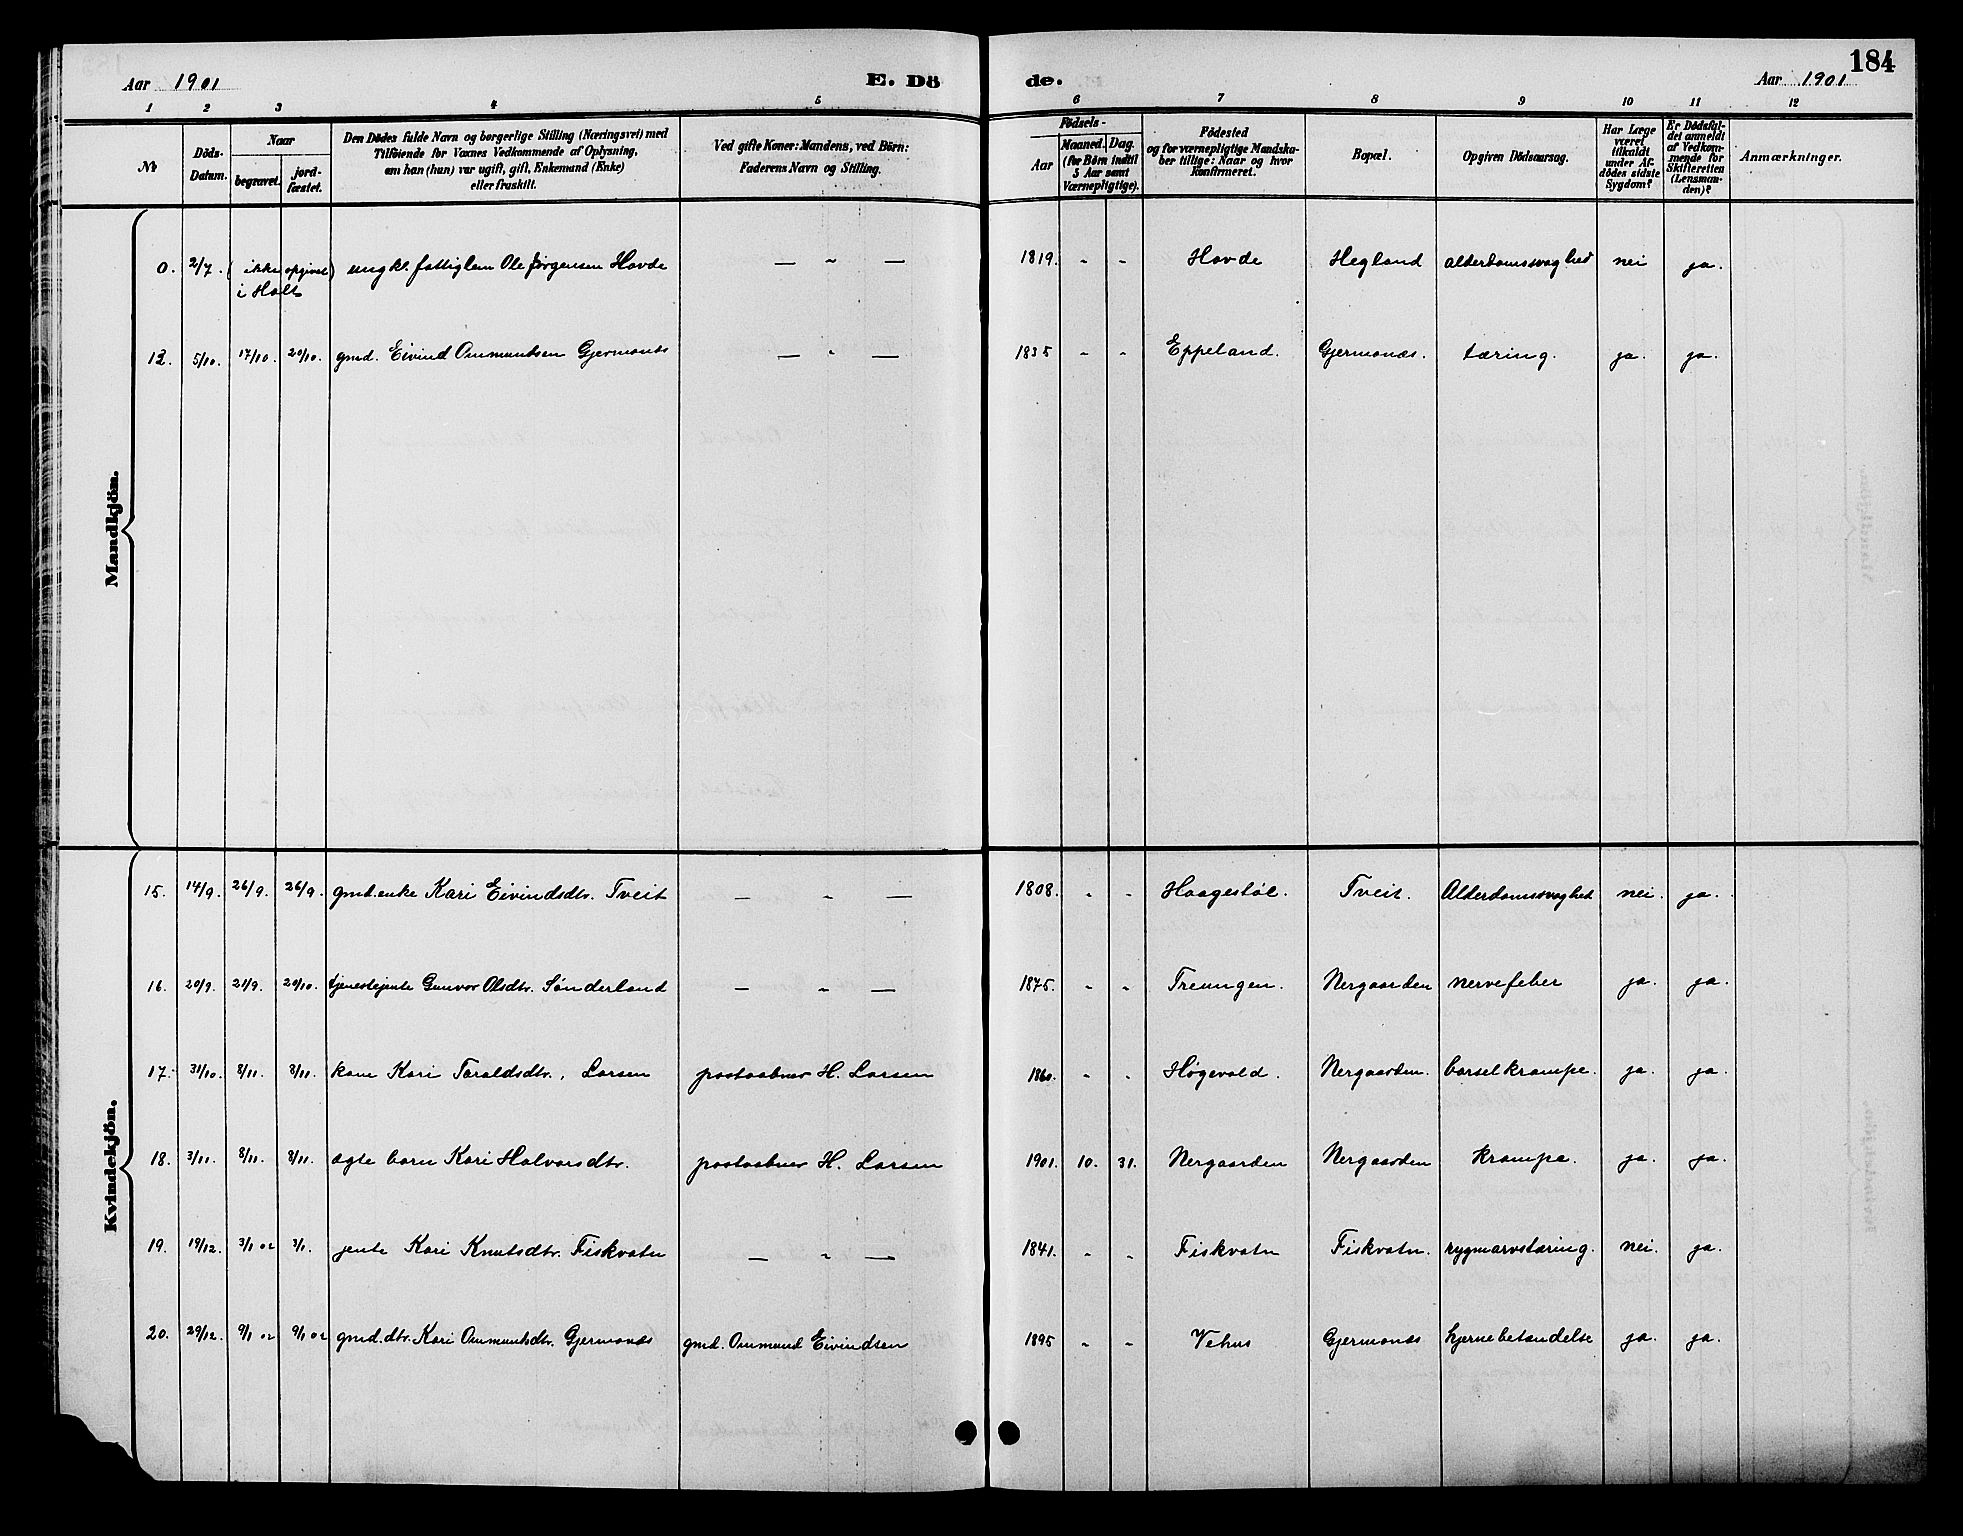 184
Aar 1901 E. Dö de. Aar 1901
1 2 3 4 5 6 7 8 9 10 11 12
№
Döds-
Datum.
Naar
begravet.
jord-
fæstet.
Den Dödes fulde Navn og borgerlige Stilling (Næringsvei) med
Tilföiende for Voxnes Vedkommende af Oplysning,
om han (hun) var ugift, gift, Enkemand (Enke)
eller fraskilt.
Ved gifte Koner: Mandens, ved Börn:
Faderens Navn og Stilling.
Födsels-
Aar
Maaned. Dag.
(for Börn indtil
5 Aar samt
Værnepligtige).
Födested
og for værnepligtige Mandska-
ber tillige: Naar og hvor
konfirmeret.
Bopæl.
Opgiven Dödsaarsag.
Har Læge
været
tilkaldt
under Af-
dödes sidste
Sygdom?
Er Dödsfal-
det anmeldt
af Vedkom-
mende for
Skifteretten
(Lensman-
den)?
Anmærkninger.
Mandkjön.
0. 2/7. (ikke opgivet) ungk. fattiglem Ole Jörgensen Hovde — " — 1819. - - Hovde Hegland alderdomssvaghed nei ja.
i Holt
12. 5/10. 17/10. 20/10. gmd. Eivind Ommundsen Gjermonæs — " — 1835 - - Eppeland. Gjermonæs. tæring. ja. ja.
Kvindekjön.
15. 14/9. 26/9. 26/9. gmd.enke Kari Eivindsdtr. Tveit — " — 1808. - - Haagestöl. Tveit. Alderdomssvaghed nei. ja.
16. 20/9. 21/9. 20/10. tjenestejente Gunvor Olsdtr. Sönderland — " — 1875. - - Treungen. Nergaarden nervefeber ja. ja.
17. 31/10. 8/11. 8/11. kone Kari Taraldsdtr., Larsen postaabner H. Larsen 1860. - - Høgevold. Nergaarden. barselkrampe. ja. ja.
18. 3/11. 8/11. 8/11. ægte barn Kari Halvorsdtr. postaabner H. Larsen 1901. 10. 31. Nergaarden Nergaarden krampe. ja. ja.
19. 19/12. 3/1 02 3/1. jente Kari Knutsdtr. Fiskvatn — " — 1841. - - Fiskvatn Fiskvatn. rygmarvstæring. nei. ja.
20. 29/12. 9/1 02 9/1 02 gmd.dtr. Kari Ommundsdtr. Gjermonæs gmd. Ommund Eivindsen 1895 - - Vehus Gjermonæs hjernebetændelse ja. ja.